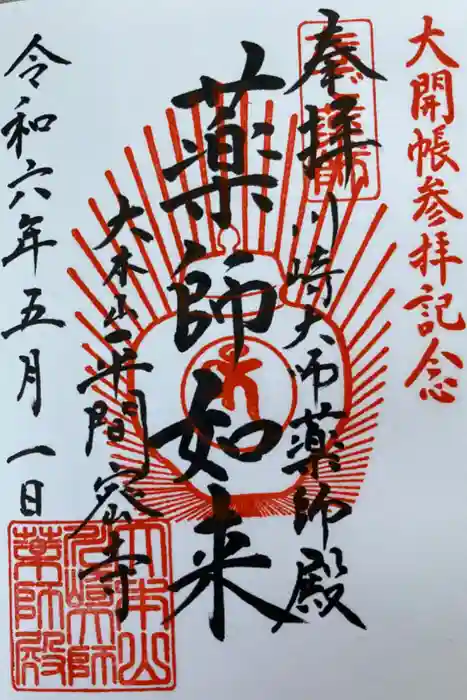 大開帳参拝記念
奉拝
川崎大師薬師殿
薬師如来
大本山平間寺
令和六年五月一日
大本山
川崎大師
薬師殿